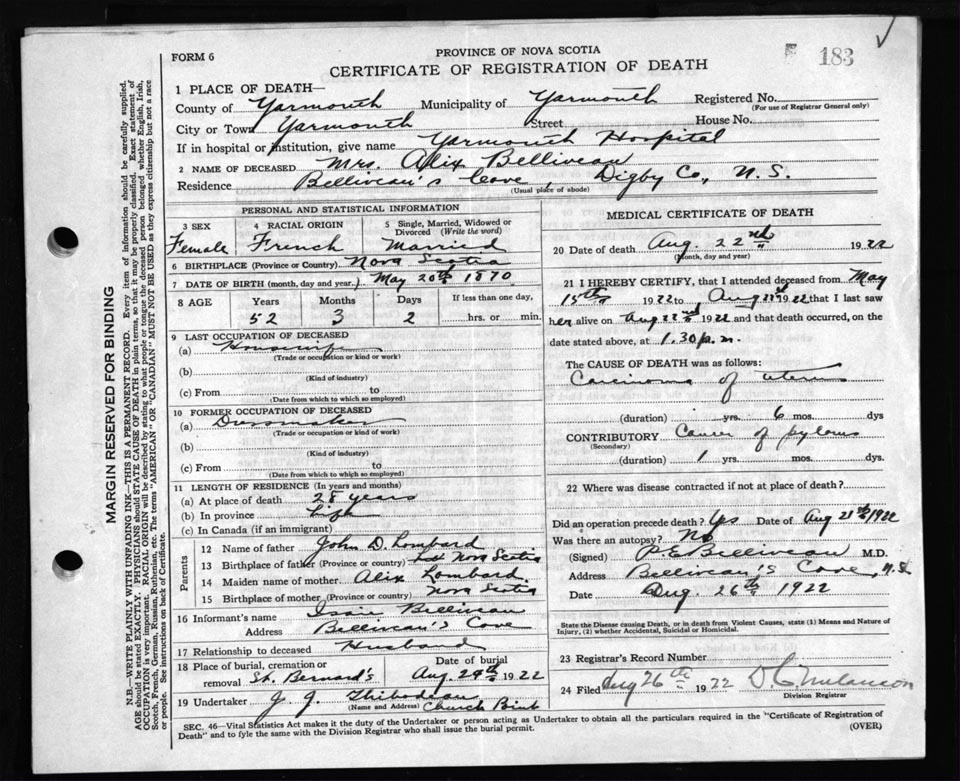 FORM 6
PROVINCE OF NOVA SCOTIA
183
CERTIFICATE OF REGISTRATION OF DEATH
1 PLACE OF DEATH—
County of Yarmouth Municipality of Yarmouth Registered No.
(For use of Registrar General only)
City or Town Yarmouth Street House No.
If in hospital or institution, give name Yarmouth Hospital
2 NAME OF DECEASED Mrs. Alix Belliveau
Residence Belliveau's Cove, Digby Co., N. S.
(Usual place of abode)
PERSONAL AND STATISTICAL INFORMATION
3 SEX Female
4 RACIAL ORIGIN French
5 Single, Married, Widowed or Divorced (Write the word) Married
6 BIRTHPLACE (Province or Country) Nova Scotia
7 DATE OF BIRTH (month, day and year) May 20th 1870
8 AGE Years Months Days If less than one day,
52 3 2 hrs. or min.
9 LAST OCCUPATION OF DECEASED
(a) Housewife
(Trade or occupation or kind or work)
(b)
(Kind of industry)
(c) From to
(Date from which to which so employed)
10 FORMER OCCUPATION OF DECEASED
(a) Dressmaker
(Trade or occupation or kind of work)
(b)
(Kind of industry)
(c) From to
(Date from which to which so employed)
11 LENGTH OF RESIDENCE (In years and months)
(a) At place of death 28 years
(b) In province Life
(c) In Canada (if an immigrant)
Parents
12 Name of father John D. Lombard
13 Birthplace of father (Province or country) Nova Scotia
14 Maiden name of mother Alix Lombard
15 Birthplace of mother (Province or country) Nova Scotia
16 Informant's name Belliveau
Address Belliveau's Cove
17 Relationship to deceased Husband
18 Place of burial, cremation or removal St. Bernard's Date of burial Aug. 24th 1922
19 Undertaker J. J. Thibodeau
(Name and Address) Church Point
MEDICAL CERTIFICATE OF DEATH
20 Date of death Aug. 22nd 1922
(Month, day and year)
21 I HEREBY CERTIFY, that I attended deceased from May
15th 1922 to Aug 22nd 1922 that I last saw
her alive on Aug 22nd 1922 and that death occurred, on the
date stated above, at 1.30 p.m.
The CAUSE OF DEATH was as follows:
Carcinoma of uterus
(duration) yrs. 6 mos. dys
CONTRIBUTORY Cancer of pylorus
(Secondary)
(duration) 1 yrs. mos. dys.
22 Where was disease contracted if not at place of death?
Did an operation precede death? Yes Date of Aug 21st 1922
Was there an autopsy? No
(Signed) P. E. Belliveau M.D.
Address Belliveau's Cove, N.S.
Date Aug. 26th 1922
State the Disease causing Death, or in death from Violent Causes, state (1) Means and Nature of
Injury, (2) whether Accidental, Suicidal or Homicidal.
23 Registrar's Record Number
24 Filed Aug 26th 1922 Melanson
Division Registrar
SEC. 46—Vital Statistics Act makes it the duty of the Undertaker or person acting as Undertaker to obtain all the particulars required in the "Certificate of Registration of
Death" and to fyle the same with the Division Registrar who shall issue the burial permit. (OVER)
MARGIN RESERVED FOR BINDING
N.B.—WRITE PLAINLY WITH UNFADING INK—THIS IS A PERMANENT RECORD. Every item of information should be carefully supplied.
AGE should be stated EXACTLY. PHYSICIANS should STATE CAUSE OF DEATH in plain terms, so that it may be properly classified. Exact statement of
OCCUPATION is very important. RACIAL ORIGIN will be described by stating to what people or tongue the deceased person belonged whether English, Irish,
Scotch, French, German, Russian, Ruthenian, etc. The terms "AMERICAN" OR "CANADIAN" MUST NOT BE USED as they express citizenship but not a race
or people. See instructions on back of Certificate.